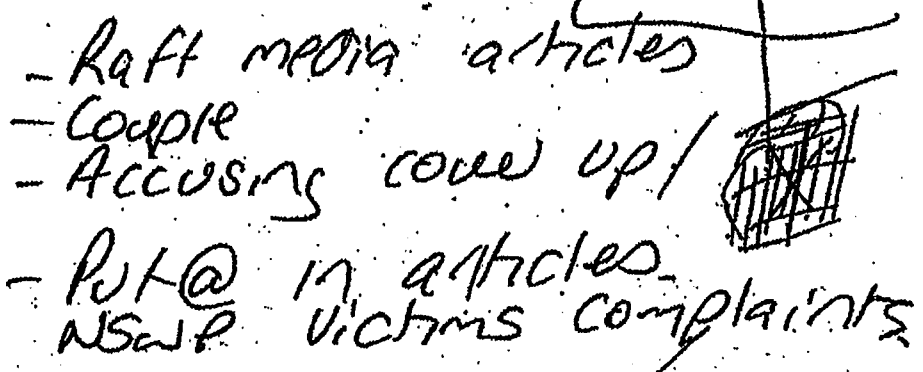 - Raft media articles
- Couple
- Accusing cover up/
- Put @ in articles
NSWP victims complaints